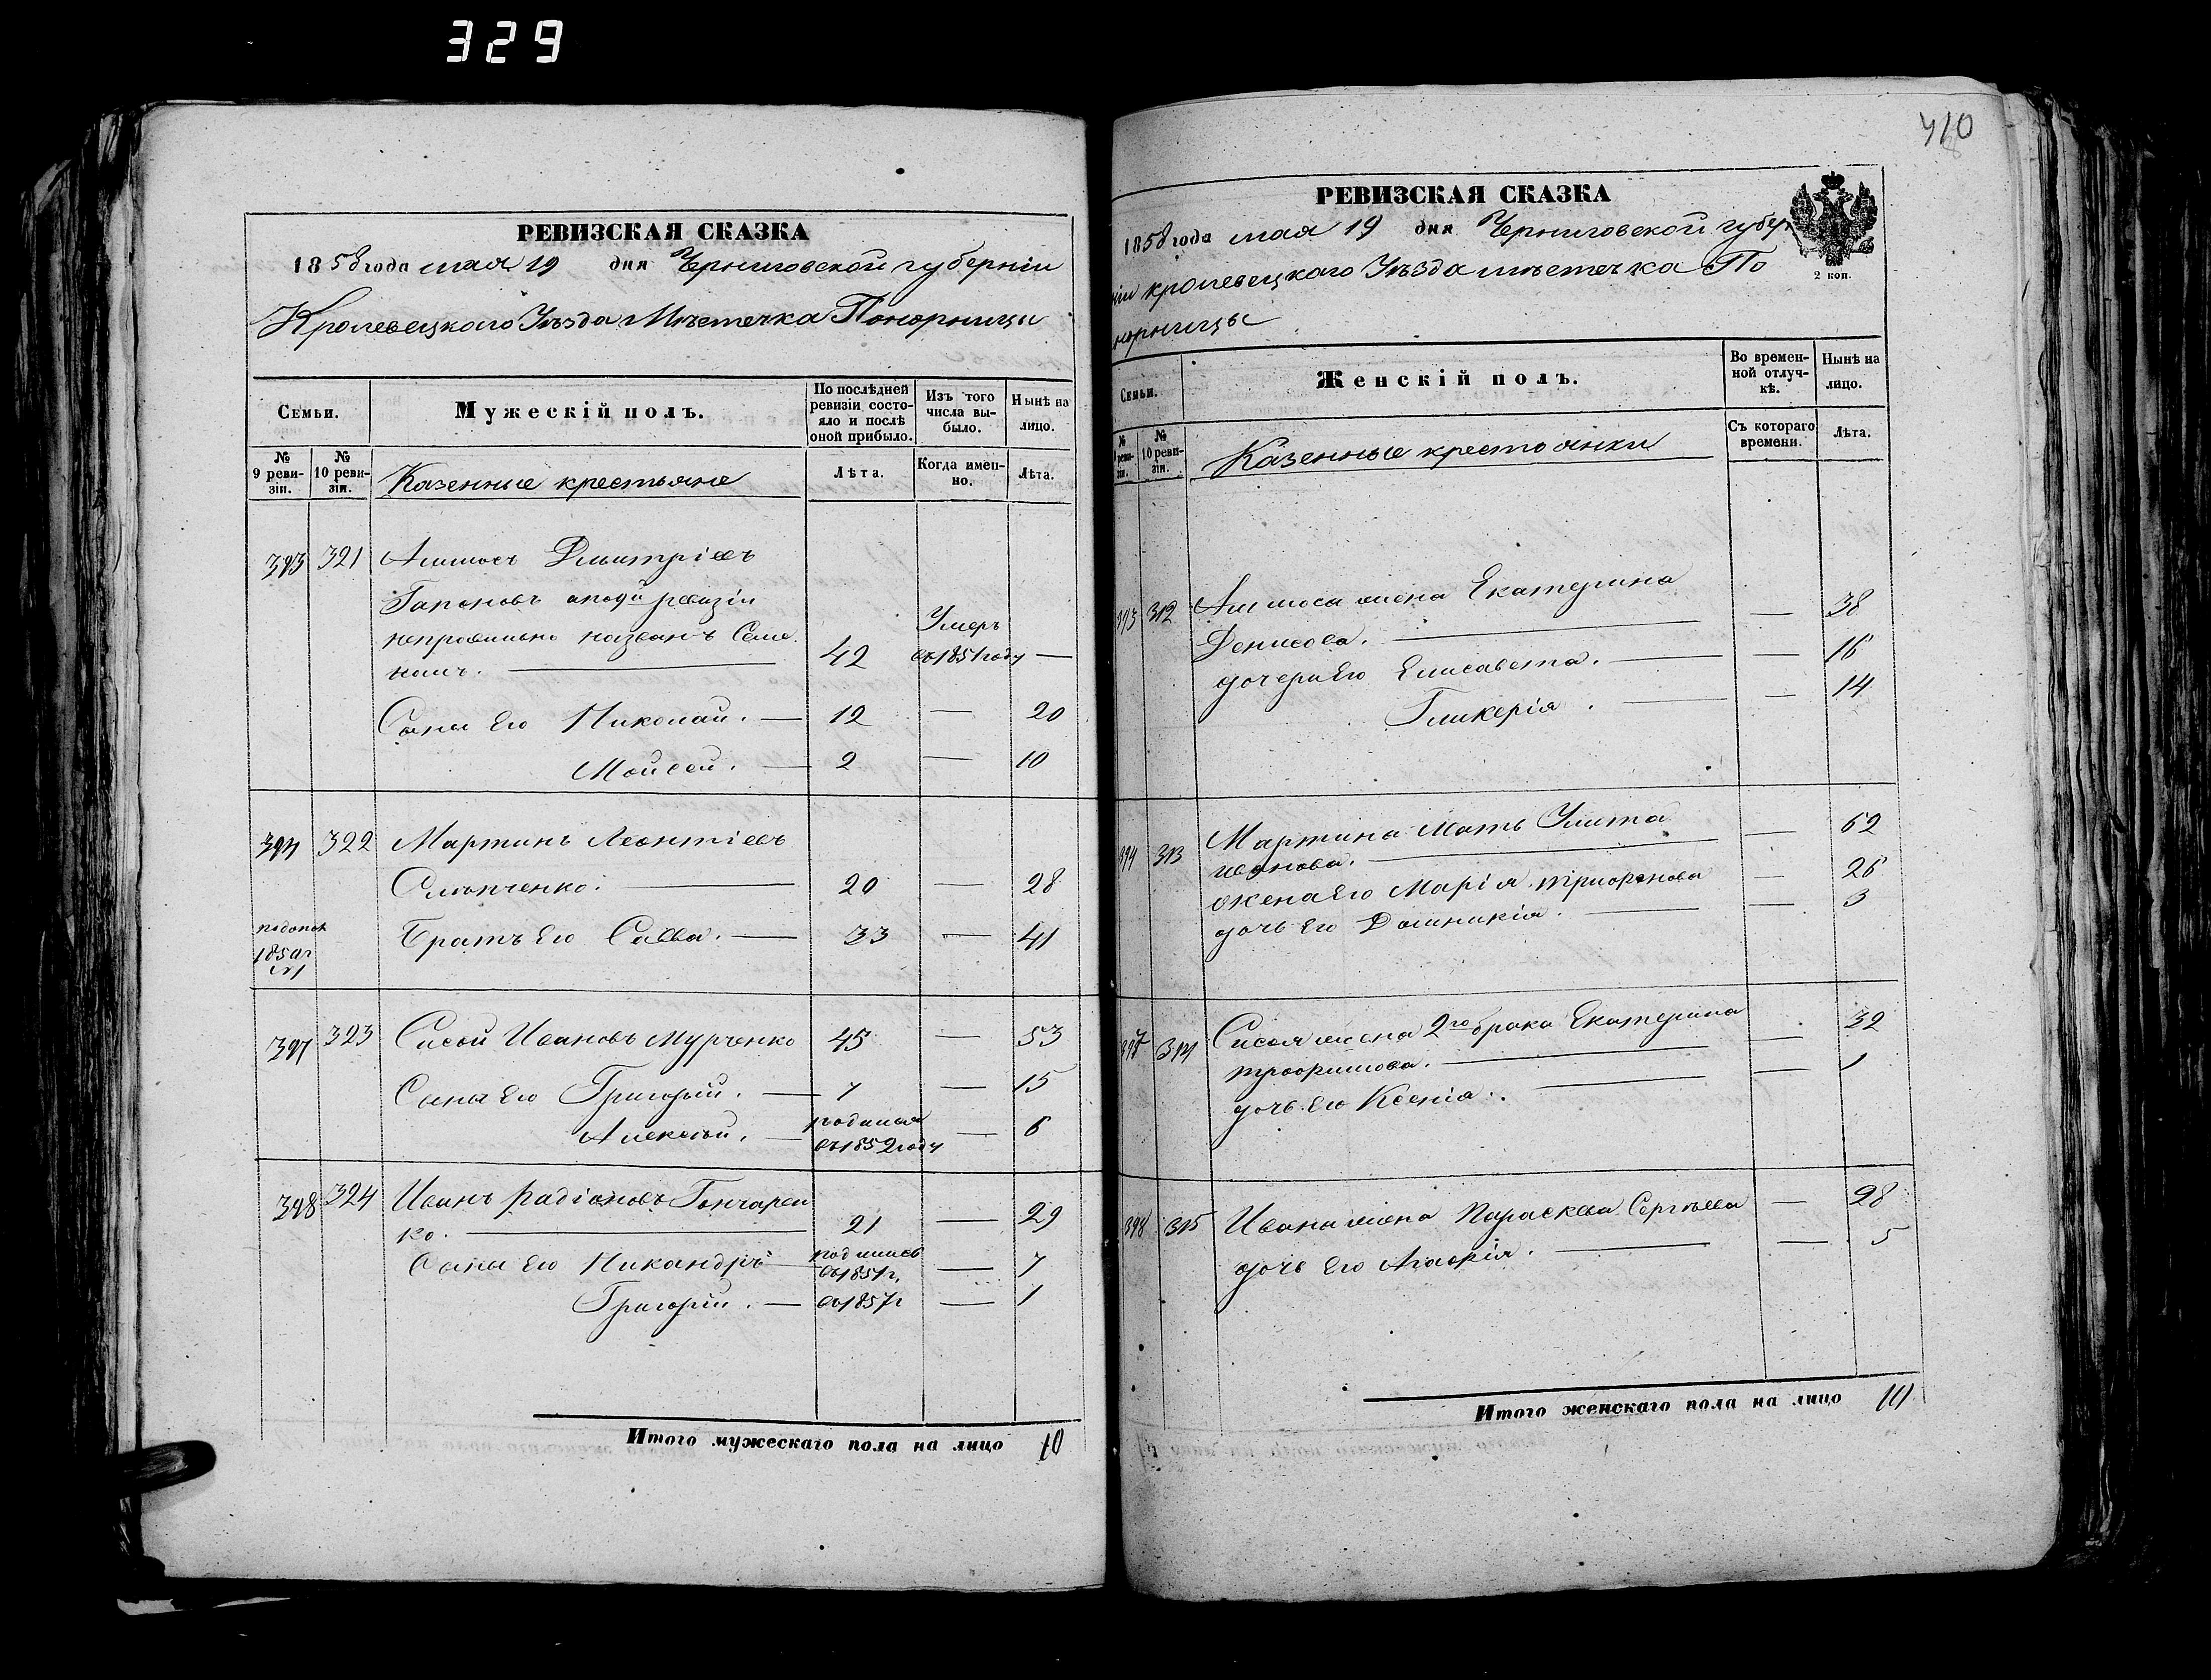 329
РЕВИЗСКАЯ СКАЗКА
1858 года мая 19 дня Черниговской губерніи
Кролевецкаго Уѣзда Мѣстечка Понорницы
Семьи.
Мужескій полъ.
По послѣдней ревизіи состояло и послѣ оной прибыло.
Изъ того числа выбыло.
Нынѣ на лицо.
№ 9 ревизіи.
№ 10 ревизіи.
Казенные крестьяне
Лѣта.
Когда именно.
Лѣта.
393 321 Аммосъ Дмитріевъ
Гапоновъ по 9й ревизіи
неправильно названъ Семе
номъ. — 42 Умеръ въ 1851 году —
Сыны Его Николай. — 12 — 20
Мойсей. — 2 — 10
394 322 Мартинъ Леонтіевъ
Слѣпченко. — 20 — 28
1850г
Братъ Его Савва. — 33 — 41
397 323 Сисой Ивановъ Мурченко 45 — 53
Сыны Его Григорій. — 7 — 15
Алексѣй. — родился въ 1852 году — 6
398 324 Иванъ Радіоновъ Гончарен
ко. — 21 — 29
Сыны Его Никандръ родился въ 1851г. — 7
Григорій. — въ 1857г — 1
Итого мужескаго пола на лицо 10
410
РЕВИЗСКАЯ СКАЗКА
1858 года мая 19 дня Черниговской губер
ніи кролевецкаго Уѣзда мѣстечка По
норницы
2 коп.
Семьи.
Женскій полъ.
Во временной отлучкѣ.
Нынѣ на лицо.
№ реви-зіи.
№ 10 ревизіи.
Казенные крестьянки
Съ котораго времени.
Лѣта.
393 312 Аммоса жена Екатерина
Денисова. — — 38
дочери Его Елисавета. — — 16
Гликерія. — — 14
394 313 Мартина Мать Улита — 62
иванова. —
жена Его Марія трифонова — 26
дочь Его Домникія. — — 3
397 314 Сисоя жена 2го брака Екатерина
трофимова. — — 32
дочь Его Ксенія. — — 1
398 315 Ивана жена Параскева Сергѣева — 28
дочь Его Агафія. — — 5
Итого женскаго пола на лицо 10